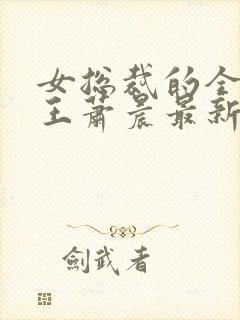 女总裁的全
王萧晨最新
剑武者